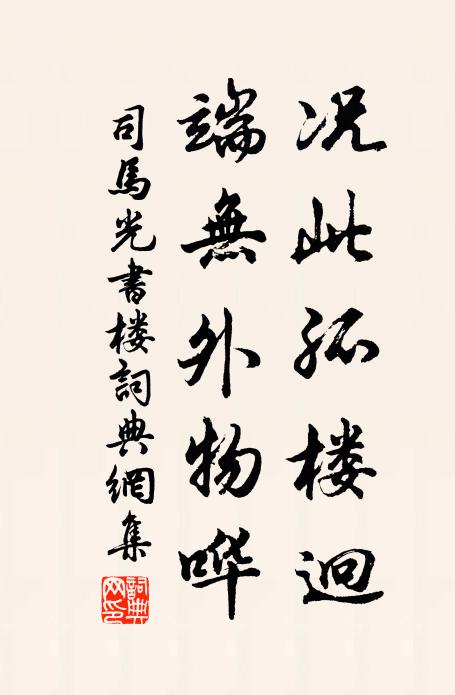 况此孤楼迥
端無外物哗
司馬光書楼詞典網集
詞典网印